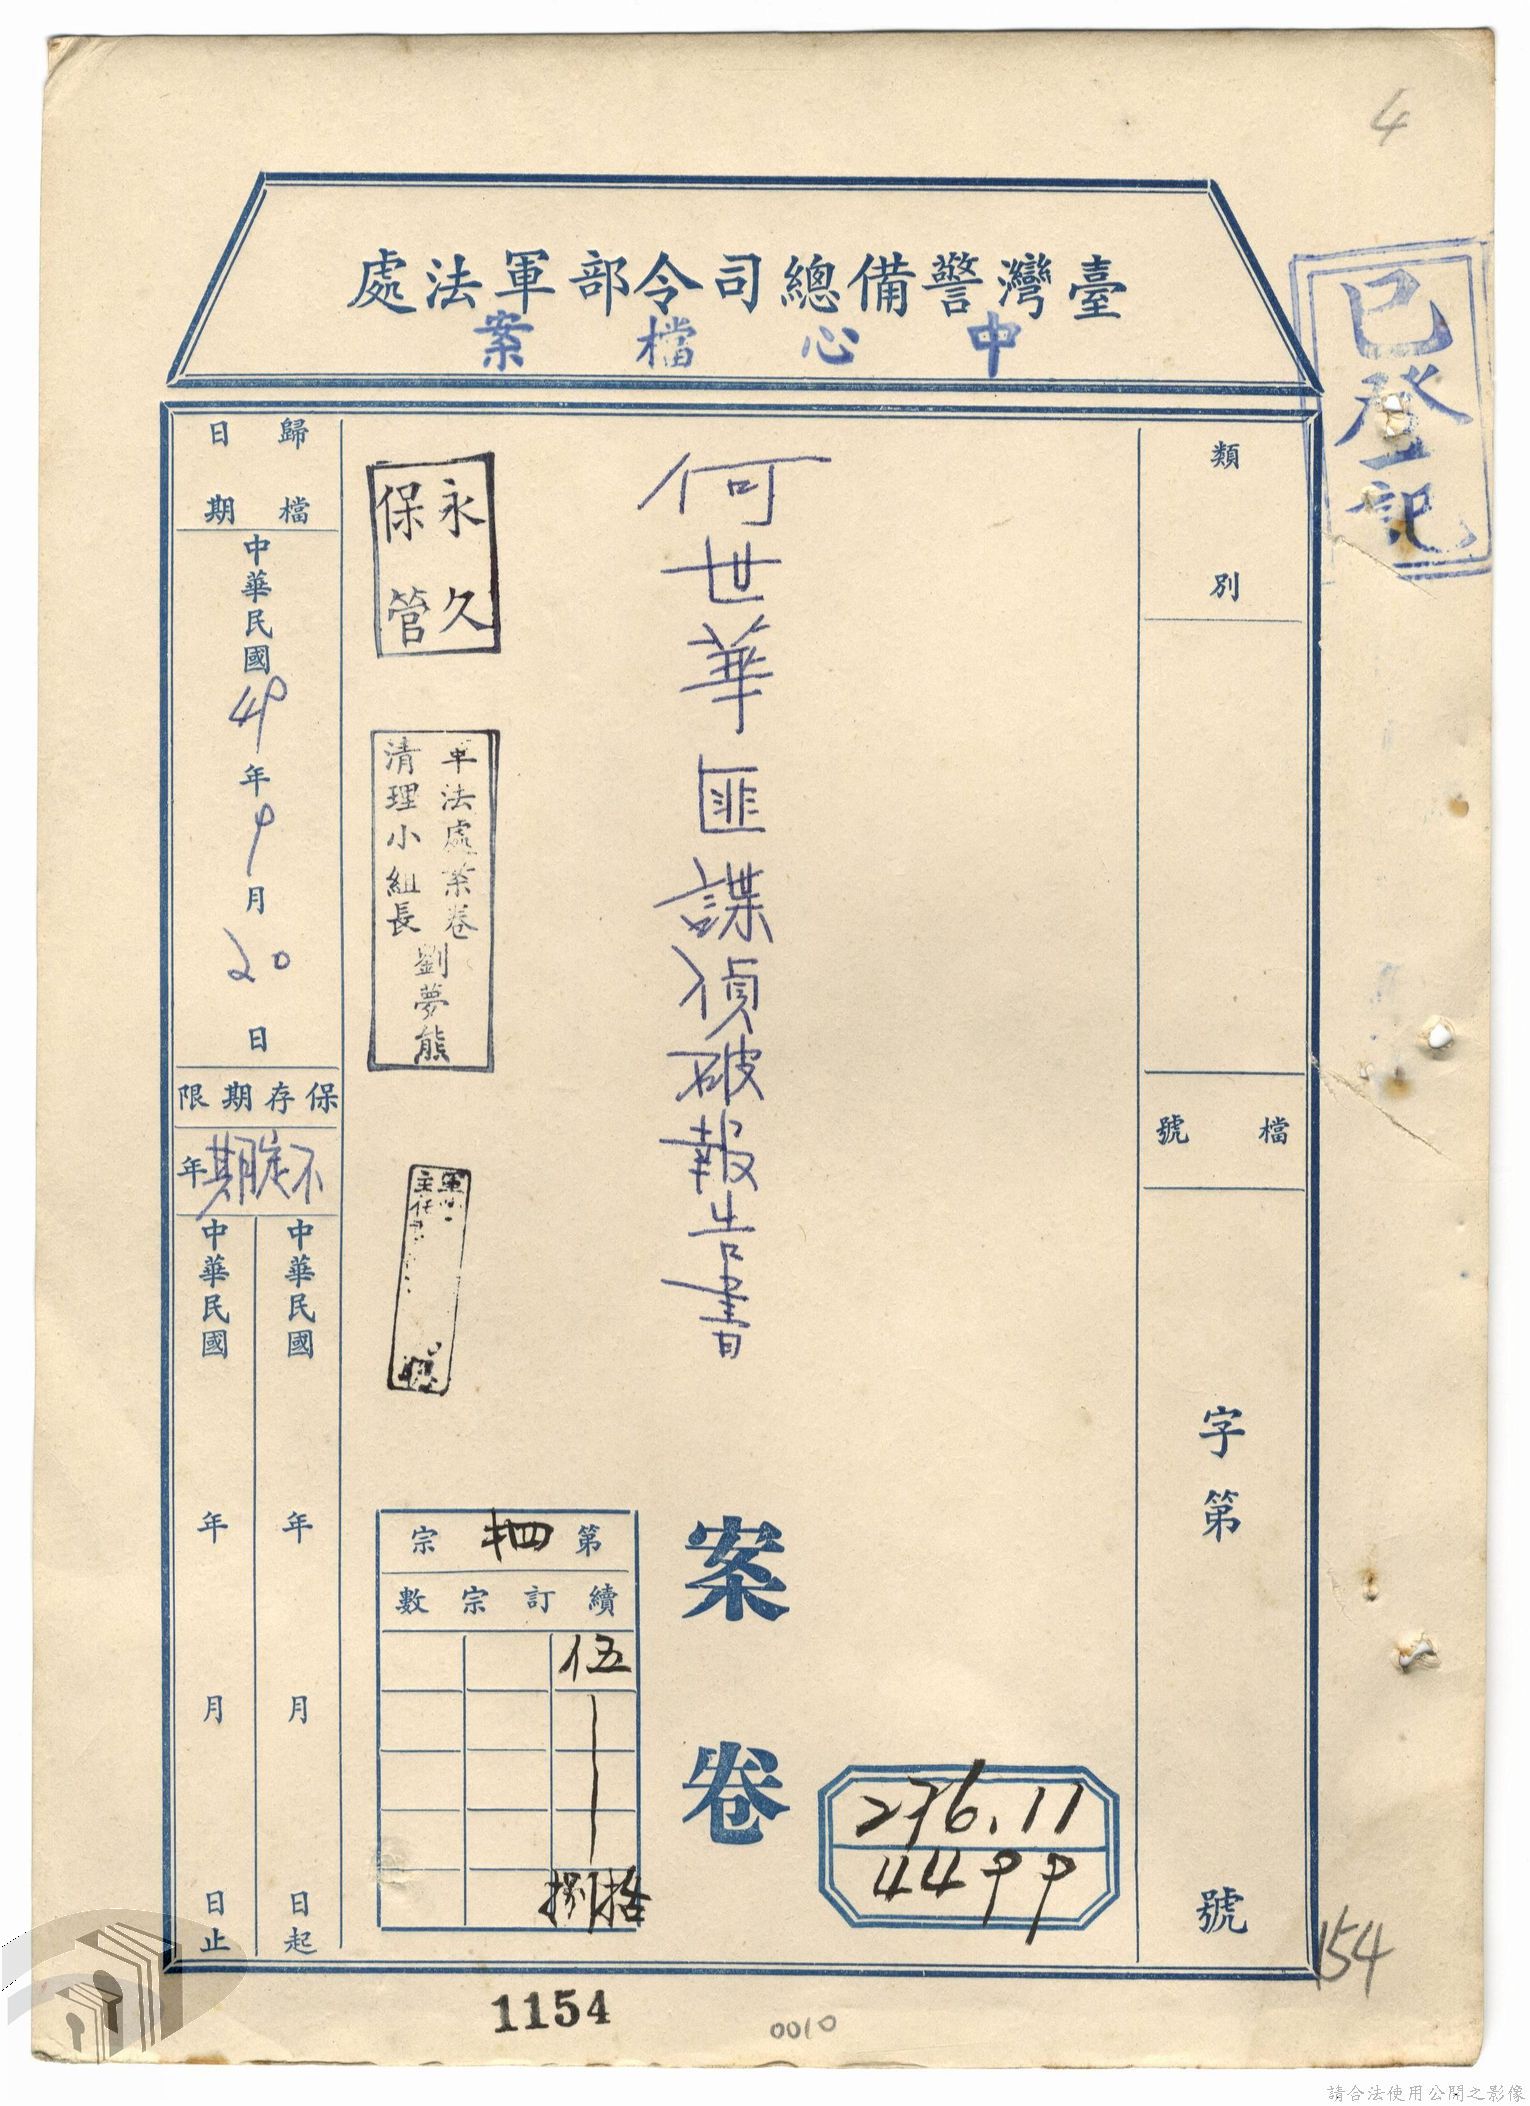 4
臺灣警備總司令部軍法處
中心檔案
已登記
類別
檔號
字第
號
何世華匪諜偵破報告書
案卷
276.11
4499
永久
保管
軍法處案卷
清理小組長
劉夢熊
主任
第 宗
續訂宗數
伍
捌拾
歸檔
日期
中華民國49年9月20日
保存期限
不定期年
中華民國 年 月 日起
中華民國 年 月 日止
154
1154
0010
請合法使用公開之影像